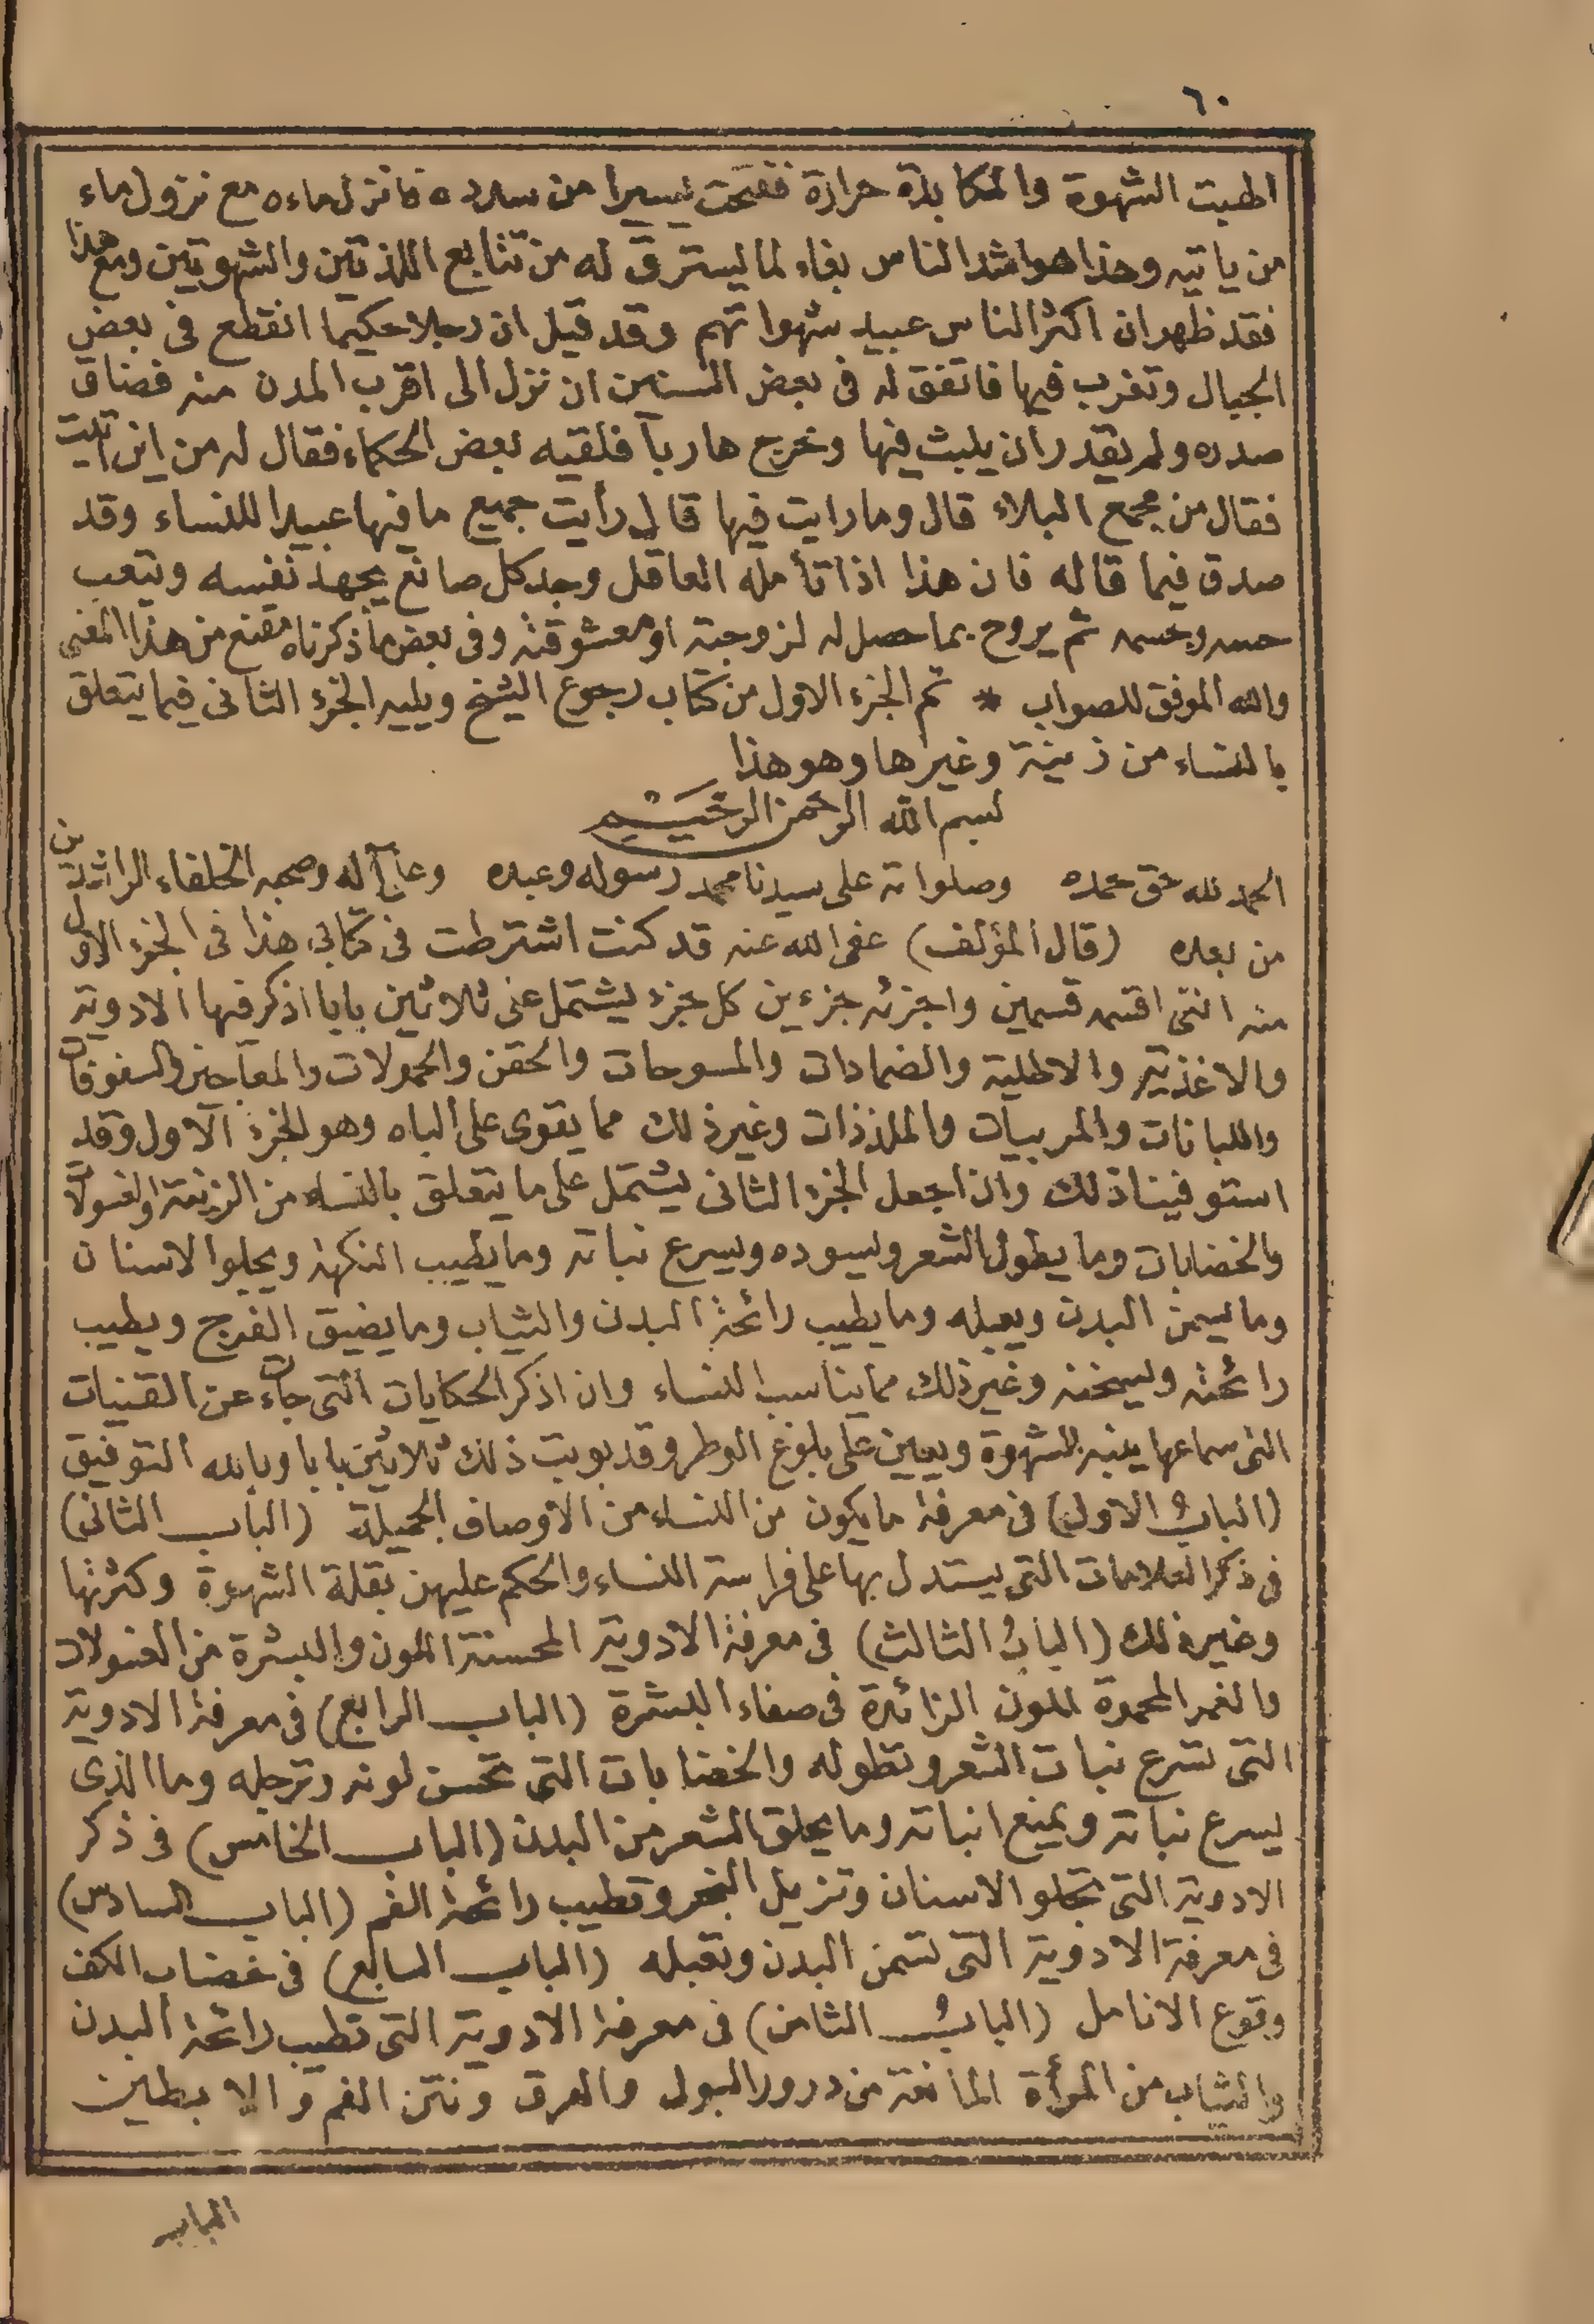 ٦٠
الهبت الشهوة والمكابدة حرارة ففتحت يسيرا من سدده فانزل ماءه مع نزول ماء
من ياتيه وهذا هو اشد الناس بغاء لما يسترق له من تتابع اللذتين والشهوتين ومع هذا
فقد ظهر ان اكثر الناس عبيد شهواتهم وقد قيل ان رجلا حكيما انقطع فى بعض
الجبال وتغرب فيها فاتفق له فى بعض السنين ان نزل الى اقرب المدن منه فضاق
صدره ولم يقدر أن يلبث فيها وخرج هاربا فلقيه بعض الحكماء فقال له من اين اتيت
فقال من مجمع البلاء قال وما رايت فيها قال رأيت جميع ما فيها عبيدا للنساء وقد
صدق فيما قاله فان هذا اذا تأمله العاقل وجد كل صانع يجهد نفسه ويتعب
حسه وجسمه ثم يروح بما حصل له لزوجته أو معشوقته وفى بعض ما ذكرناه مقنع من هذا المعنى
والله الموفق للصواب * تم الجزء الاول من كتاب رجوع الشيخ ويليه الجزء الثانى فيما يتعلق
بالنساء من زينة وغيرها وهو هذا
بسم الله الرحمن الرحيم
الحمد لله حق حمده وصلواته على سيدنا محمد رسوله وعبده وعلى آله وصحبه الخلفاء الراشدين
من بعده (قال المؤلف) عفى الله عنه قد كنت اشترطت فى كتابى هذا فى الجزء الاول
منه اننى اقسمه قسمين واجزئه جزءين كل جزء يشتمل على ثلاثين بابا اذكر فيها الادوية
والاغذية والاطلية والضمادات والمسوحات والحقن والحمولات والمعاجين والسفوفات
واللبانات والمربيات والملذذات وغير ذلك مما يقوى على الباه وهو الجزء الاول وقد
استوفينا ذلك وان اجعل الجزء الثانى يشتمل على ما يتعلق بالنساء من الزينة والغسولات
والخضابات وما يطول الشعر ويسوده ويسرع نباته وما يطيب النكهة ويجلوا الاسنان
وما يسمن البدن ويعبله وما يطيب رائحة البدن والثياب وما يضيق الفرج ويطيب
رائحته ويسخنه وغير ذلك مما يناسب النساء وان اذكر الحكايات التى جاءت عن القينات
التى سماعها ينبه الشهوة ويعين على بلوغ الوطر وقد بوبت ذلك ثلاثين بابا وبالله التوفيق
(الباب الاول) فى معرفة ما يكون من النساء من الاوصاف الجميلة (الباب الثانى)
فى ذكر العلامات التى يستدل بها على فراسة النساء والحكم عليهن بقلة الشهوة وكثرتها
وغير ذلك (الباب الثالث) فى معرفة الادوية المحسنة اللون والبشرة من الغسولات
والغمر المحمرة اللون الزائدة فى صفاء البشرة (الباب الرابع) فى معرفة الادوية
التى تسرع نبات الشعر وتطوله والخضابات التى تحسن لونه وترجله وما الذى
يسرع نباته ويمنع انباته وما يحلق الشعر من البدن (الباب الخامس) فى ذكر
الادوية التى تجلو الاسنان وتزيل البخر وتطيب رائحة الفم (الباب السادس)
فى معرفة الادوية التى تسمن البدن وتعبله (الباب السابع) فى خضاب الكف
وقموع الانامل (الباب الثامن) فى معرفة الادوية التى تطيب رائحة البدن
والثياب من المرأة المانعة من درور البول والعرق ونتن الفم والابطين
الباب